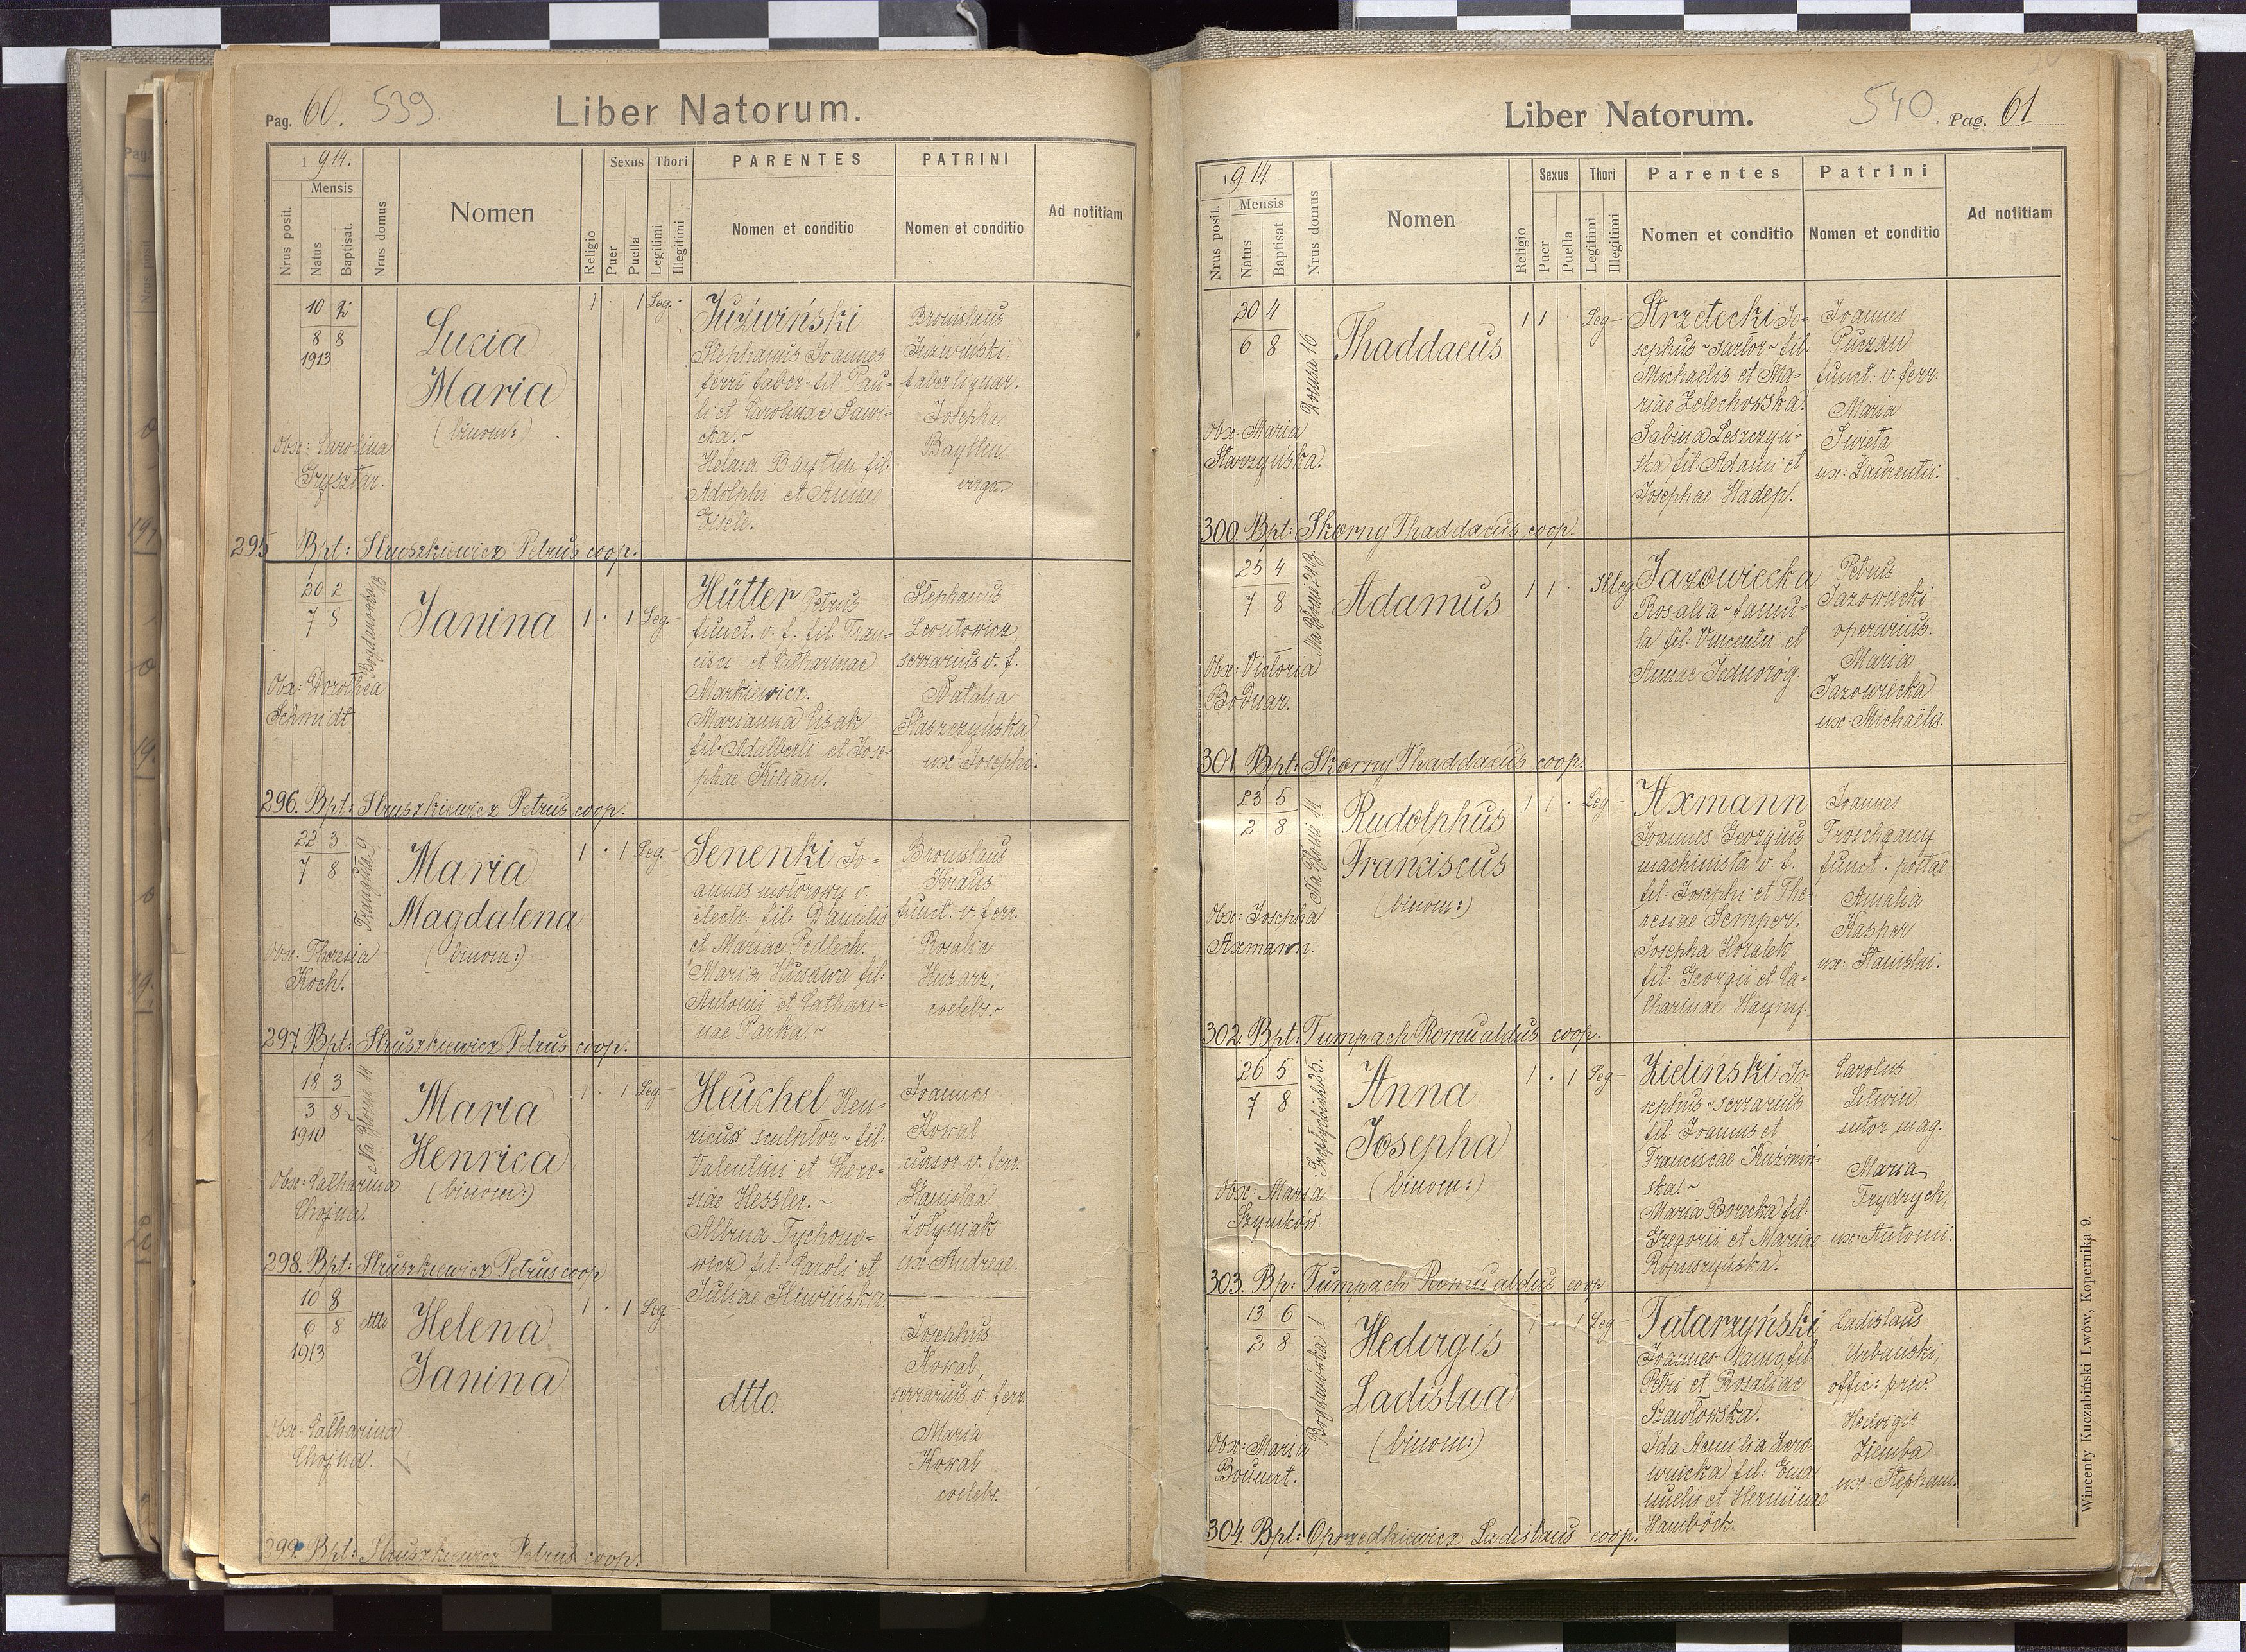 Pag. 60. 539. Liber Natorum.
1914.
Mensis
Nrus posit.
Natus
Baptisat.
Nrus domus
Nomen
Religio
Sexus
Puer
Puella
Thori
Legitimi
Illegitimi
PARENTES
Nomen et conditio
PATRINI
Nomen et conditio
Ad notitiam
10 2
8 8
1913
Obx: Carolina
Lucia
Maria
(binom:)
1 . 1 Leg.
Juźwiński
Stephanus Joannes
ferri faber - fil. Pau=
li et Carolinae Sawi=
cka.
Helena Baytlen fil.
Adolphi et Annae
Eisele.
Bronislaus
Juźwiński,
faber lignar.
Josepha
virgo
295 Bpt: Struszkiewicz Petrus coop.
20 2
7 8
Bogdanówka
Obx: Dorothea
Schmidt.
Janina
1 . 1 Leg.
Hütter Petrus
funct. v. f. fil. Fran=
cisci et Catharinae
Markiewicz.
Marianna Cisak
fil. Adalberti et Jose=
phae Kilian.
Stephanus
Leontowicz
serrarius v. f.
Natalia
Staszczyńska
ux: Josephi.
296. Bpt: Struszkiewicz Petrus coop.
22 3
7 8
Obx: Theresia
Koch.
Maria
Magdalena
(binom:)
1 . 1 Leg.
Senenki Jo=
annes motorowy v.
electr. fil: Danielis
et Mariae Pedlech.
Maria Husawa fil:
Antonii et Cathari=
nae Parka.
Bronislaus
Kraus
funct. v. ferr.
Rosalia
Huzarz,
coelebs.
297. Bpt: Struszkiewicz Petrus coop.
18 3
3 8
1910
Na Błonie 14
Obx: Catharina
Chojna.
Maria
Henrica
(binom:)
1 . 1 Leg
Heuchel Hen=
ricus sculptor - fil:
Valentini et There=
siae Hessler.
Albina Tychono=
wicz fil: Caroli et
Juliae Śliwińska.
Joannes
Kowal
cursor v. ferr.
Stanislaa
ux: Andreae.
298. Bpt: Struszkiewicz Petrus coop
10 8
6 8
1913
dtto
Obx: Catharina
Chojna.
Helena
Janina
1 . 1 Leg.
dtto.
Josephus
Kowal,
serrarius v. ferr.
Maria
Kowal
coelebs.
299. Bpt: Struszkiewicz Petrus coop.
Liber Natorum. 540. Pag. 61
1914.
Mensis
Nrus posit.
Natus
Baptisat
Nrus domus
Nomen
Religio
Sexus
Puer
Puella
Thori
Legitimi
Illegitimi
Parentes
Nomen et conditio
Patrini
Nomen et conditio
Ad notitiam
20 4
6 8
Obx: Maria
Starzyńska.
Thaddaeus
1 1 Leg
Strzetecki Jo=
sephus - sartor - fil.
Michaëlis et Ma=
riae Zelechowska.
Sabina Leszczyń=
ska fil Adami et
Josephae Hadep.
Joannes
Puczan
funct. v. ferr.
Maria
Świeta
ux: Laurentii.
300. Bpt: Skorny Thaddaeus coop.
25 4
7 8
Obx: Victoria
Bodnar.
Adamus
1 1 Illeg.
Jazowiecka
Rosalia - famu=
la fil: Vincentii et
Annae Jednoróg.
Petrus
Jazowiecki
operarius.
Maria
Jazowiecka
ux: Michaëlis.
301 Bpt: Skorny Thaddaeus coop.
23 5
2 8
Na Błonie 14
Obx: Josepha
Axmann.
Rudolphus
Franciscus
(binom:)
1 1 . Leg
Axmann
Joannes Georgius
machinista v. f.
fil: Josephi et The=
resiae Semper.
Josepha Horalek
fil: Georgii et Ca=
tharinae Hayny.
Joannes
funct. postae
Amalia
Kasper
ux: Stanislai.
302. Bpt: Tumpach Romualdus coop.
26 5
7 8
Obx: Maria
Szymków.
Anna
Josepha
(binom:)
1 . 1 Leg
Zieliński Jo=
sephus - serrarius
fil: Joannis et
Franciscae Kuźmiń=
ska.
Maria Borecka fil:
Gregorii et Mariae
Ropuszyńska.
Carolus
Litwin
sutor mag.
Maria
Frydrych,
ux: Antonii.
303. Bp: Tumpach Romualdus coop
13 6
2 8
Bogdanówka 1
Obx: Maria
Bounert.
Hedvigis
Ladislaa
(binom:)
1 . 1 Leg
Tatarzyński
Petri et Rosaliae
Szawłowska.
Ida Aemilia Zero
wnicka fil: Ema
nuelis et Herminae
Hamböck.
Ladislaus
Urbański,
offic: priv.
Hedvigis
Ziemba
ux: Stephani.
304. Bpt: Oprzędkiewicz Ladislaus coop.
Wincenty Kuczabiński Lwów, Kopernika 9.